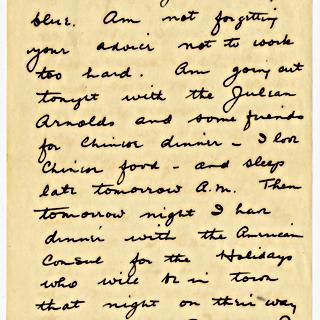 blue. Am not forgetting
your advice not to work
too hard. Am going out
tonight with the Julean
Arnolds and some friends
for Chinese dinner - I love
Chinese food - and sleep
late tomorrow A.M. Then
tomorrow night I have
dinner with the American
Consul for the Holidays
who will be in town
that night on their way